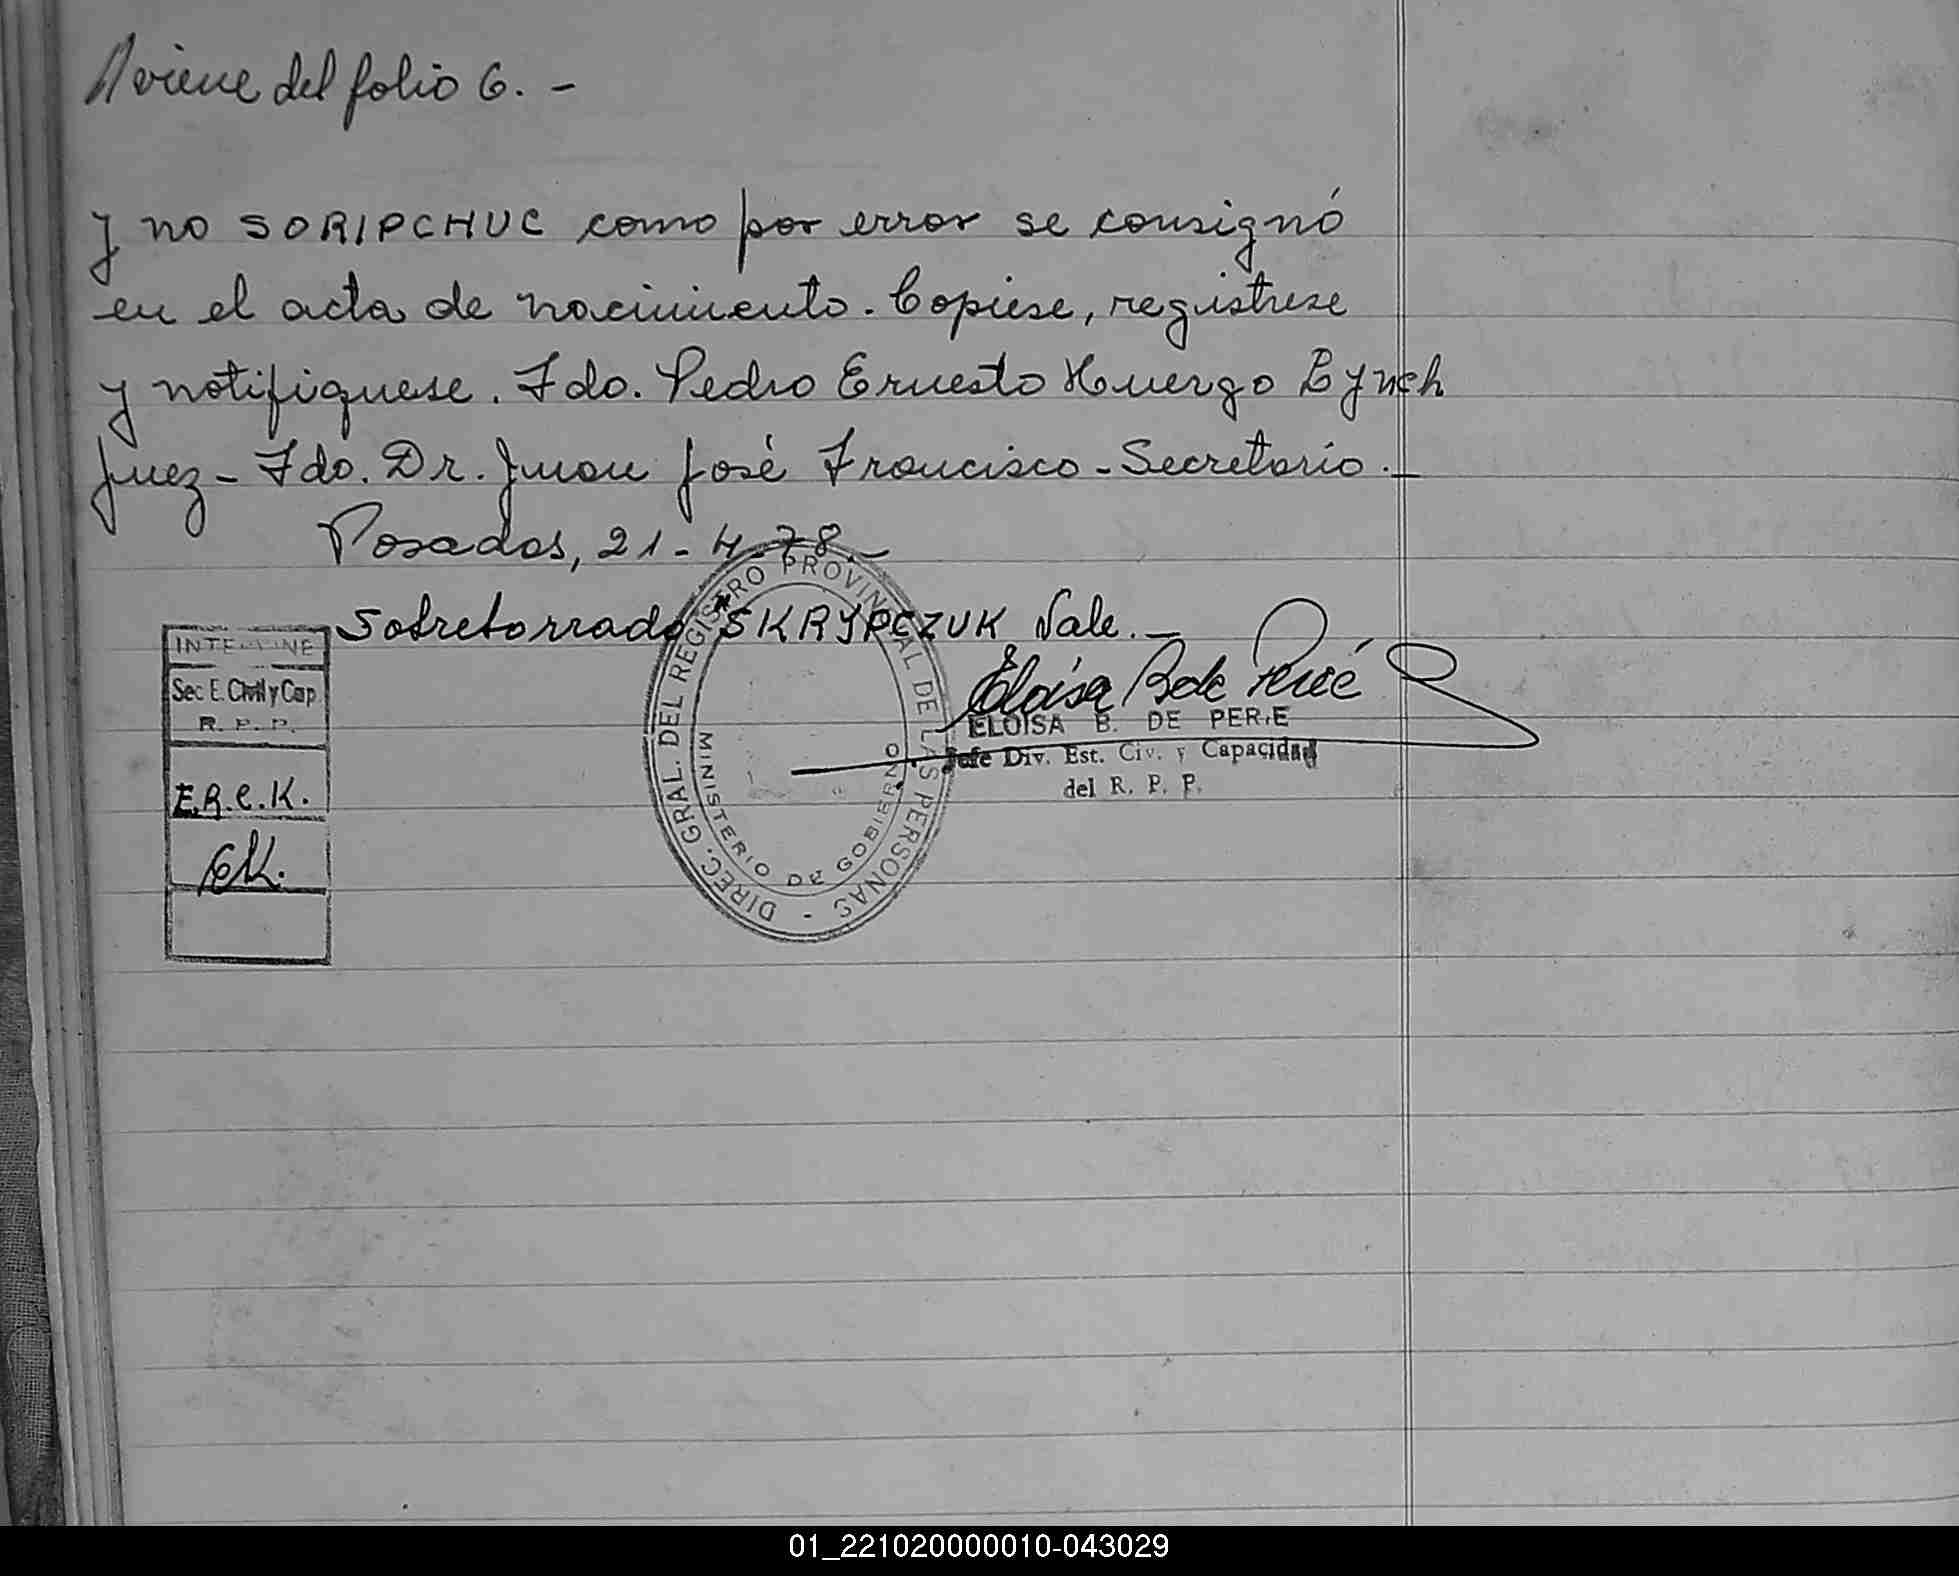 viene del folio 6. -
y no SORIPCHUC como por error se consignó
en el acta de nacimiento. Copiese, registrese
y notifiquese. Fdo. Pedro Ernesto Huergo Lynch
Juez - Fdo. Dr. Juan José Francisco - Secretario. -
Posadas, 21 - 4 - 78. -
Sobreborrado "SKRYPCZUK Vale. -
INTERVINE
Sec E. Civil y Cap
R. P. P.
E.R.C.K.
EK.
DIREC. GRAL. DEL REGISTRO PROVINCIAL DE LAS PERSONAS -
MINISTERIO DE GOBIERNO
Eloisa B de Perié
ELOISA B. DE PERIE
Jefe Div. Est. Civ. y Capacidad
del R. P. P.
01_221020000010-043029